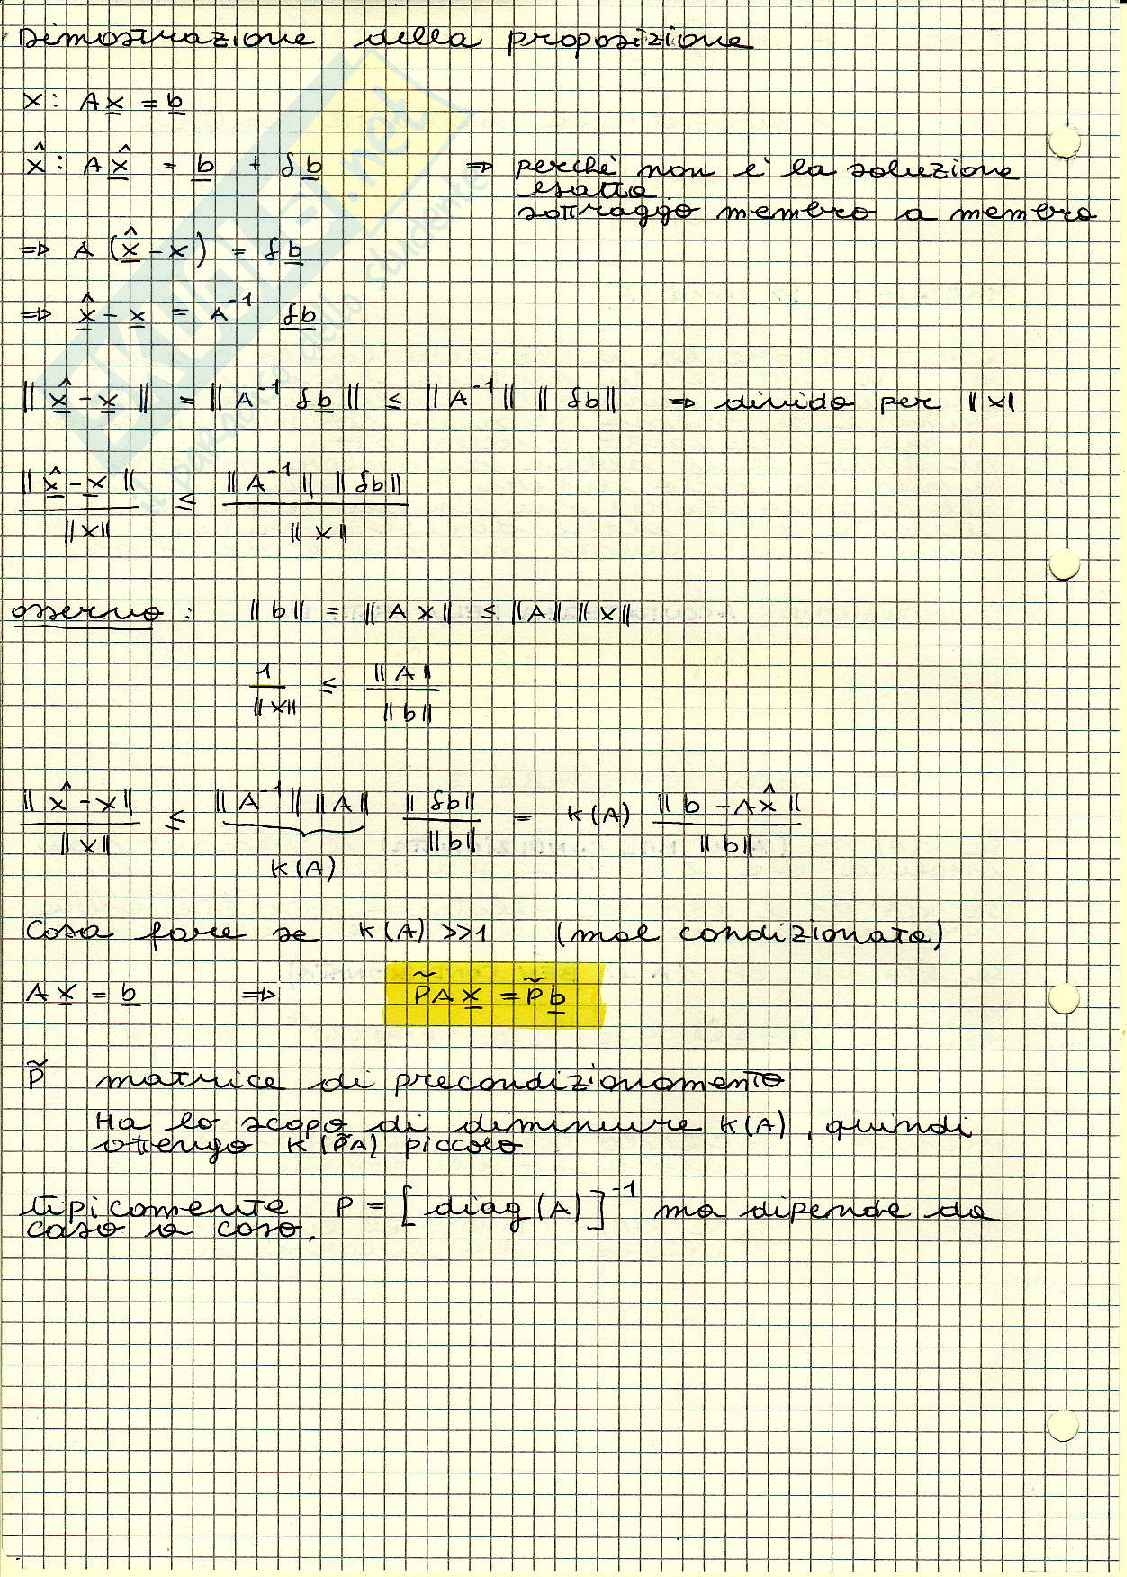 Dimostrazione della proposizione
x : A x = b
x̂ : A x̂ = b + δb ⇒ perchè non è la soluzione
esatta
sottraggo membro a membro
⇒ A (x̂ - x) = δb
⇒ x̂ - x = A⁻¹ δb
‖ x̂ - x ‖ = ‖ A⁻¹ δb ‖ ≤ ‖A⁻¹‖ ‖ δb‖ ⇒ divido per ‖x‖
‖ x̂ - x ‖ / ‖x‖ ≤ ‖A⁻¹‖ ‖δb‖ / ‖x‖
osservo : ‖b‖ = ‖A x‖ ≤ ‖A‖ ‖x‖
1 / ‖x‖ ≤ ‖A‖ / ‖b‖
‖ x̂ - x‖ / ‖x‖ ≤ ‖A⁻¹‖ ‖A‖ ‖δb‖ / ‖b‖ = K(A) ‖b - A x̂‖ / ‖b‖
K(A)
cosa fare se K(A) >>1 (mal condizionata)
A x = b ⇒ P̃ A x = P̃ b
P̃ matrice di precondizionamento
Ha lo scopo di diminuire K(A), quindi
ottengo K(P̃A) piccolo
tipicamente P = [diag(A)]⁻¹ ma dipende da
caso a caso.
SKUOLA.net
il paradiso dello studente